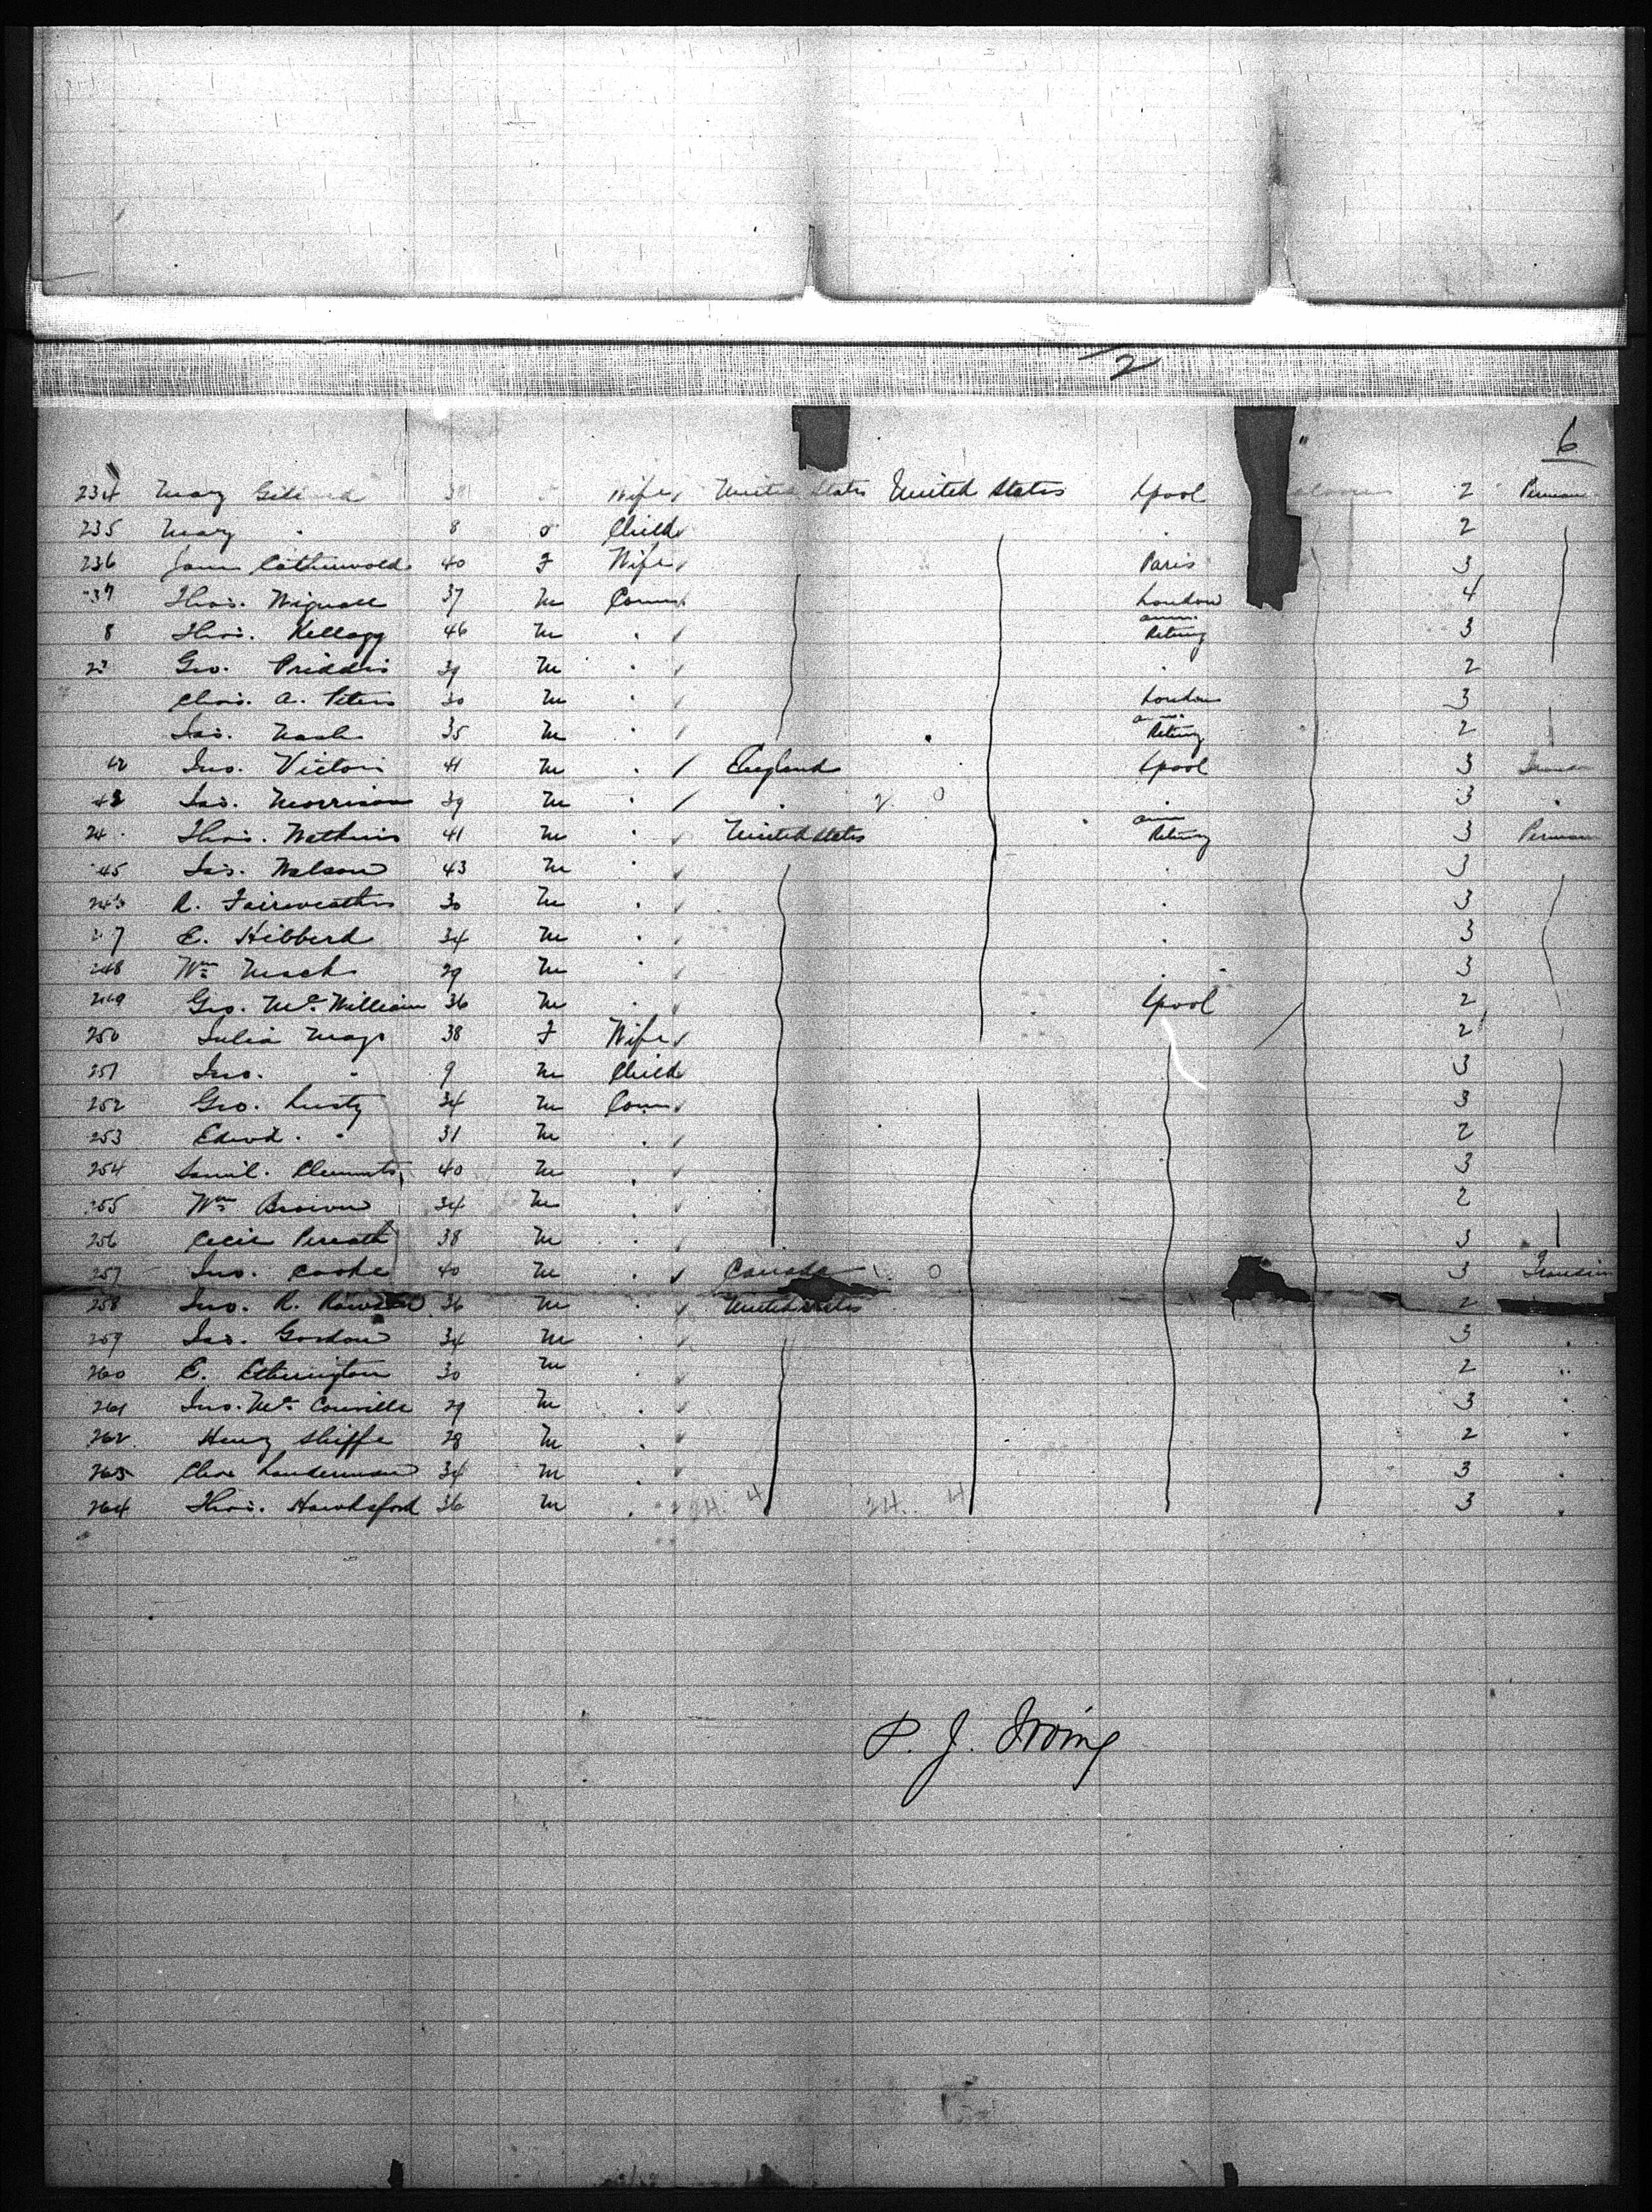 2
6
234 Mary 38 Wife United States United States Lpool 2
235 Mary " 8 Child " 2
236 Jane Catherwold 40 F Wife Paris 3
37 Thos. Wignall 37 M Comm. London 4
8 Thos. Kellogg 46 M " 3
Geo. Priddis 39 M " " 2
Chas. A. Peters 30 M " London 3
Jas. Nash 35 M " 2
42 Jno. Victor 41 M " England Lpool 3
43 Jas. Morrison 39 M " " 2 0 " 3 "
24 Thos. Watkins 41 M " United States 3
45 Jas. Nelson 43 M " " 3
R. Fairweather 30 M " " 3
E. Hibberd 34 M " " 3
248 Wm 29 M " " 3
249 Geo. McWilliam 36 M " Lpool 2
250 Julia Mays 38 F Wife 2
251 Jno. " 9 M Child 3
252 Geo. Lusty 34 M Comm 3
253 Edwd. " 31 M " 2
254 Saml. Clements 40 M " 3
255 Wm Brown 34 M " 2
256 Cecil 38 M " 3
257 Jno. Cooke 40 M " Canada 1 0 3
258 Jno. R. 36 M " United States 2
259 Jas. Gordon 34 M " 3 "
260 E. Etherington 30 M " 2 "
261 Jno. McConville 29 M " 3 "
262 Henry 28 M " 2 "
263 Landerman 34 M " 3 "
264 Thos. Hawksford 36 M " 24. 4 24. 4 3 "
P. J. Irving